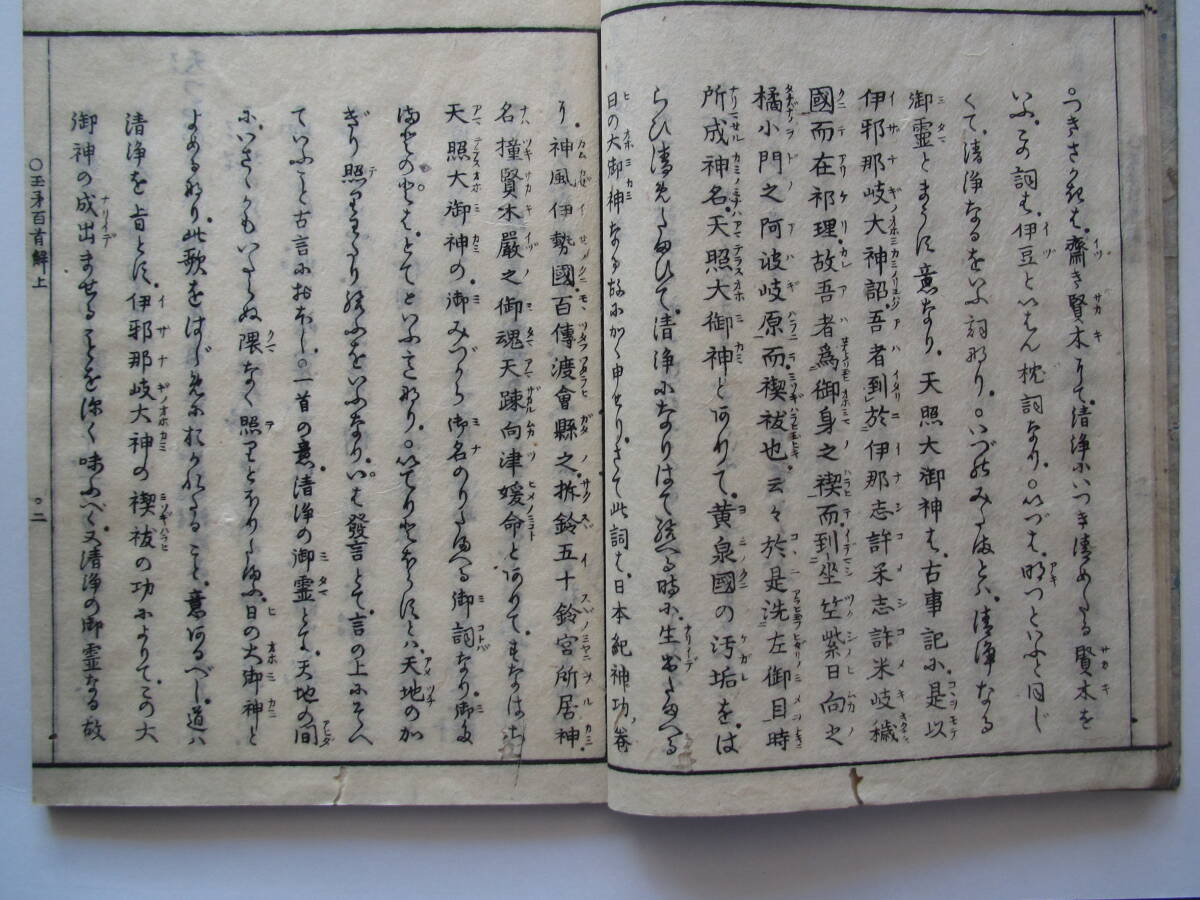 ○つきさかきは、齋き賢木にて、清浄にいつき清めたる賢木を
いふ、この詞は、伊豆といはん枕詞なり、○いづは、明つといふと同じ
くて、清浄なるをいふ詞なり、○いづのみたまとは、清浄なる
御霊とまうす意なり、天照大御神は、古事記に、是以
伊邪那岐大神詔、吾者到於伊那志許米志許米岐穢
國而在祁理、故吾者為御身之禊而到坐竺紫日向之
橘小門之阿波岐原而禊祓也、云々於是洗左御目時
所成神名、天照大御神とありて、黄泉國の汚垢をは
らひ清めたまひて、清浄になりはて給へる時に、生出たまへる
日の大御神なる故にかく申せり、さて此詞は、日本紀神功ノ巻
に、神風伊勢國百傳渡會縣之、拆鈴五十鈴宮所居神
名、撞賢木嚴之御魂天疎向津媛命とありて、すなはち
天照大御神の、御みづから御名のりたまへる御詞なり、御
とてといふこゝろなり、○いてりとほらすとは、天地のか
ぎり照りわたり給ふをいふなり、いは發言とて、言の上にそへ
ていふこと古言におほし、○一首の意、清浄の御霊とて、天地の間
に、いさゝかもいたらぬ隈なく照りとほりたまふ、日の大御神と
よめるなり、此歌をはじめにおかれたること、意あるべし、道ハ
清浄を旨とす、伊邪那岐大神の禊祓の功によりて、この大
御神の成出ませることを深く味ふべく、又清浄の御霊なる故
○玉矛百首解上
○二